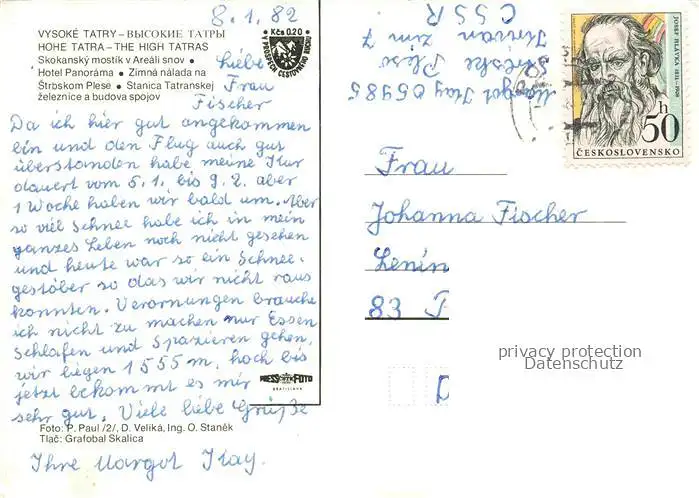 8.1.82
VYSOKÉ TATRY – ВЫСОКИЕ ТАТРЫ
HOHE TATRA – THE HIGH TATRAS
Skokanský mostík v Areáli snov •
Hotel Panoráma • Zimná nálada na
Štrbskom Plese • Stanica Tatranskej
železnice a budova spojov
Kčs 0,20
V PROSPECH CESTOVNÉHO RUCHU
Liebe
Frau
Fischer
Da ich hier gut angekommen
bin und den Flug auch gut
überstanden habe meine Kur
dauert vom 5.1. bis 9.2. aber
1 Woche haben wir bald um. Aber
so viel Schnee habe ich in mein
ganzes Leben noch nicht gesehen
und heute war so ein Schnee-
gestöber so das wir nicht raus
konnten. Verornungen brauche
ich nicht zu machen nur Essen
Schlafen und Spazieren gehen.
wir liegen 1555 m, hoch bis
jetzt bekommt es mir
sehr gut. Viele liebe Grüße
Ihre Margot Ilay.
PRESSFOTO
BRATISLAVA
Foto: P. Paul /2/, D. Veliká, Ing. O. Staněk
Tlač: Grafobal Skalica
Margot Ilay 05985
Pleso
7
ČSSR
JOSEF HLÁVKA 1831–1908
50 h
ČESKOSLOVENSKO
Frau
Johanna Fischer
Lenin
83
D
privacy protection
Datenschutz